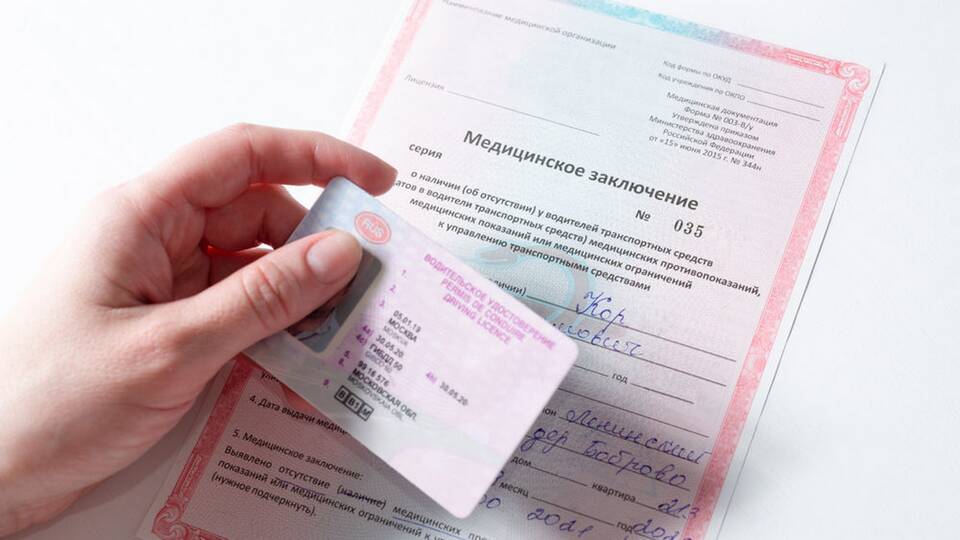 Наименование медицинской организации
Код формы по ОКУД
Код учреждения по ОКПО
Лицензия
Медицинская документация
Форма № 003-В/у
Утверждена приказом
Министерства здравоохранения
Российской Федерации
от «15» июня 2015 г. № 344н
Медицинское заключение
серия № 035
о наличии (об отсутствии) у водителей транспортных средств
атов в водители транспортных средств) медицинских противопоказаний,
медицинских показаний или медицинских ограничений
к управлению транспортными средствами
Кор
год
Ленинский
дер Боброво
дом квартира 213
месяц год
2021
4. Дата выдачи меди
5. Медицинское заключение:
Выявлено отсутствие (наличие) медицинских
показаний или медицинских ограничений к
(нужное подчеркнуть).
RUS
ВОДИТЕЛЬСКОЕ УДОСТОВЕРЕНИЕ
PERMIS DE CONDUIRE
DRIVING LICENCE
1.
2.
3.
05.01.19
МОСКВА
MOSKVA
4a) 30.05.20 4b) 30.05.20
4c) ГИБДД 50
GIBDD 50
5. 99 16 576
8. МОСКОВСКАЯ ОБЛ.
MOSKOVSKAIA OBL.
9. B B1 M